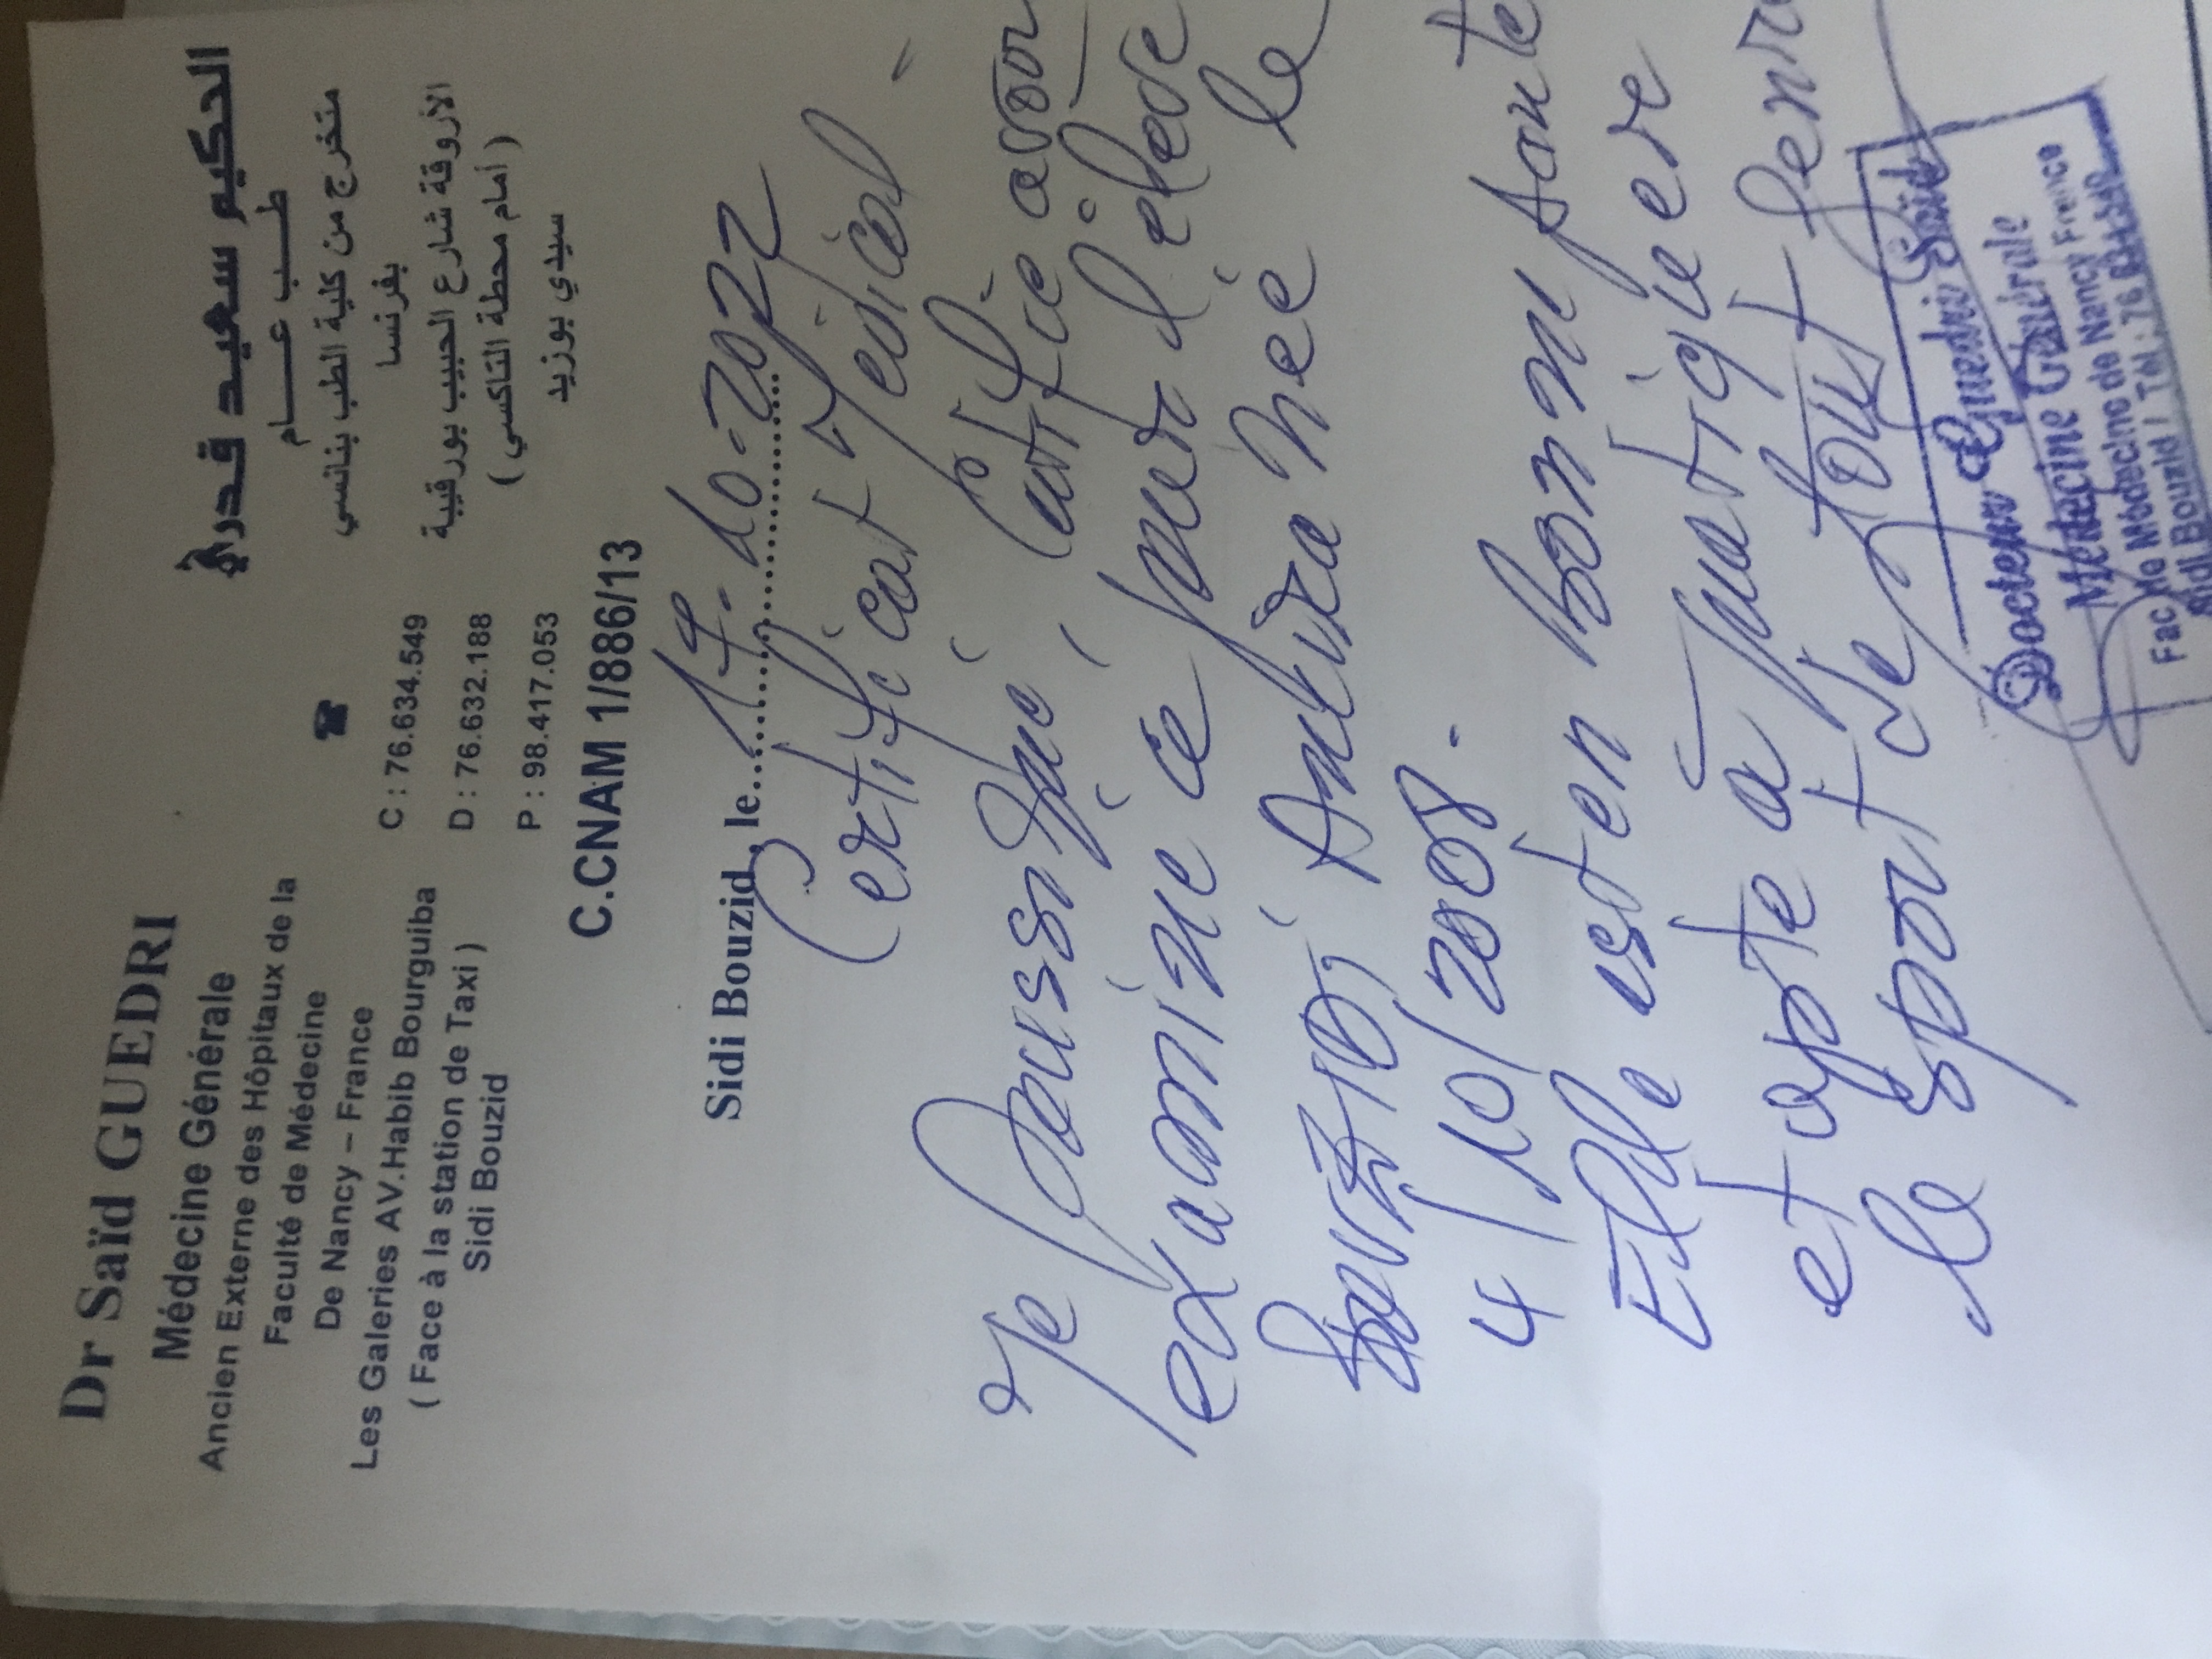 Dr Saïd GUEDRI
Médecine Générale
Ancien Externe des Hôpitaux de la
Faculté de Médecine
De Nancy – France
Les Galeries AV.Habib Bourguiba
( Face à la station de Taxi )
Sidi Bouzid
C : 76.634.549
D : 76.632.188
P : 98.417.053
C.CNAM 1/886/13
الحكيم سعيد قدري
طب عام
متخرج من كلية الطب بنانسي
بفرنسا
الأروقة شارع الحبيب بورقيبة
( أمام محطة التاكسي )
سيدي بوزيد
Sidi Bouzid, le 17-10-2022
Certificat Médical
Je Soussigné, Certifie avoir
examiné ce jour l'élève
née le
4/10/2008.
Elle est en bonne santé
et apte à pratiquer
le sport de tout genre
Docteur Guedri Saïd
Médecine Générale
Fac de Médecine de Nancy France
Sidi Bouzid / Tél : 76